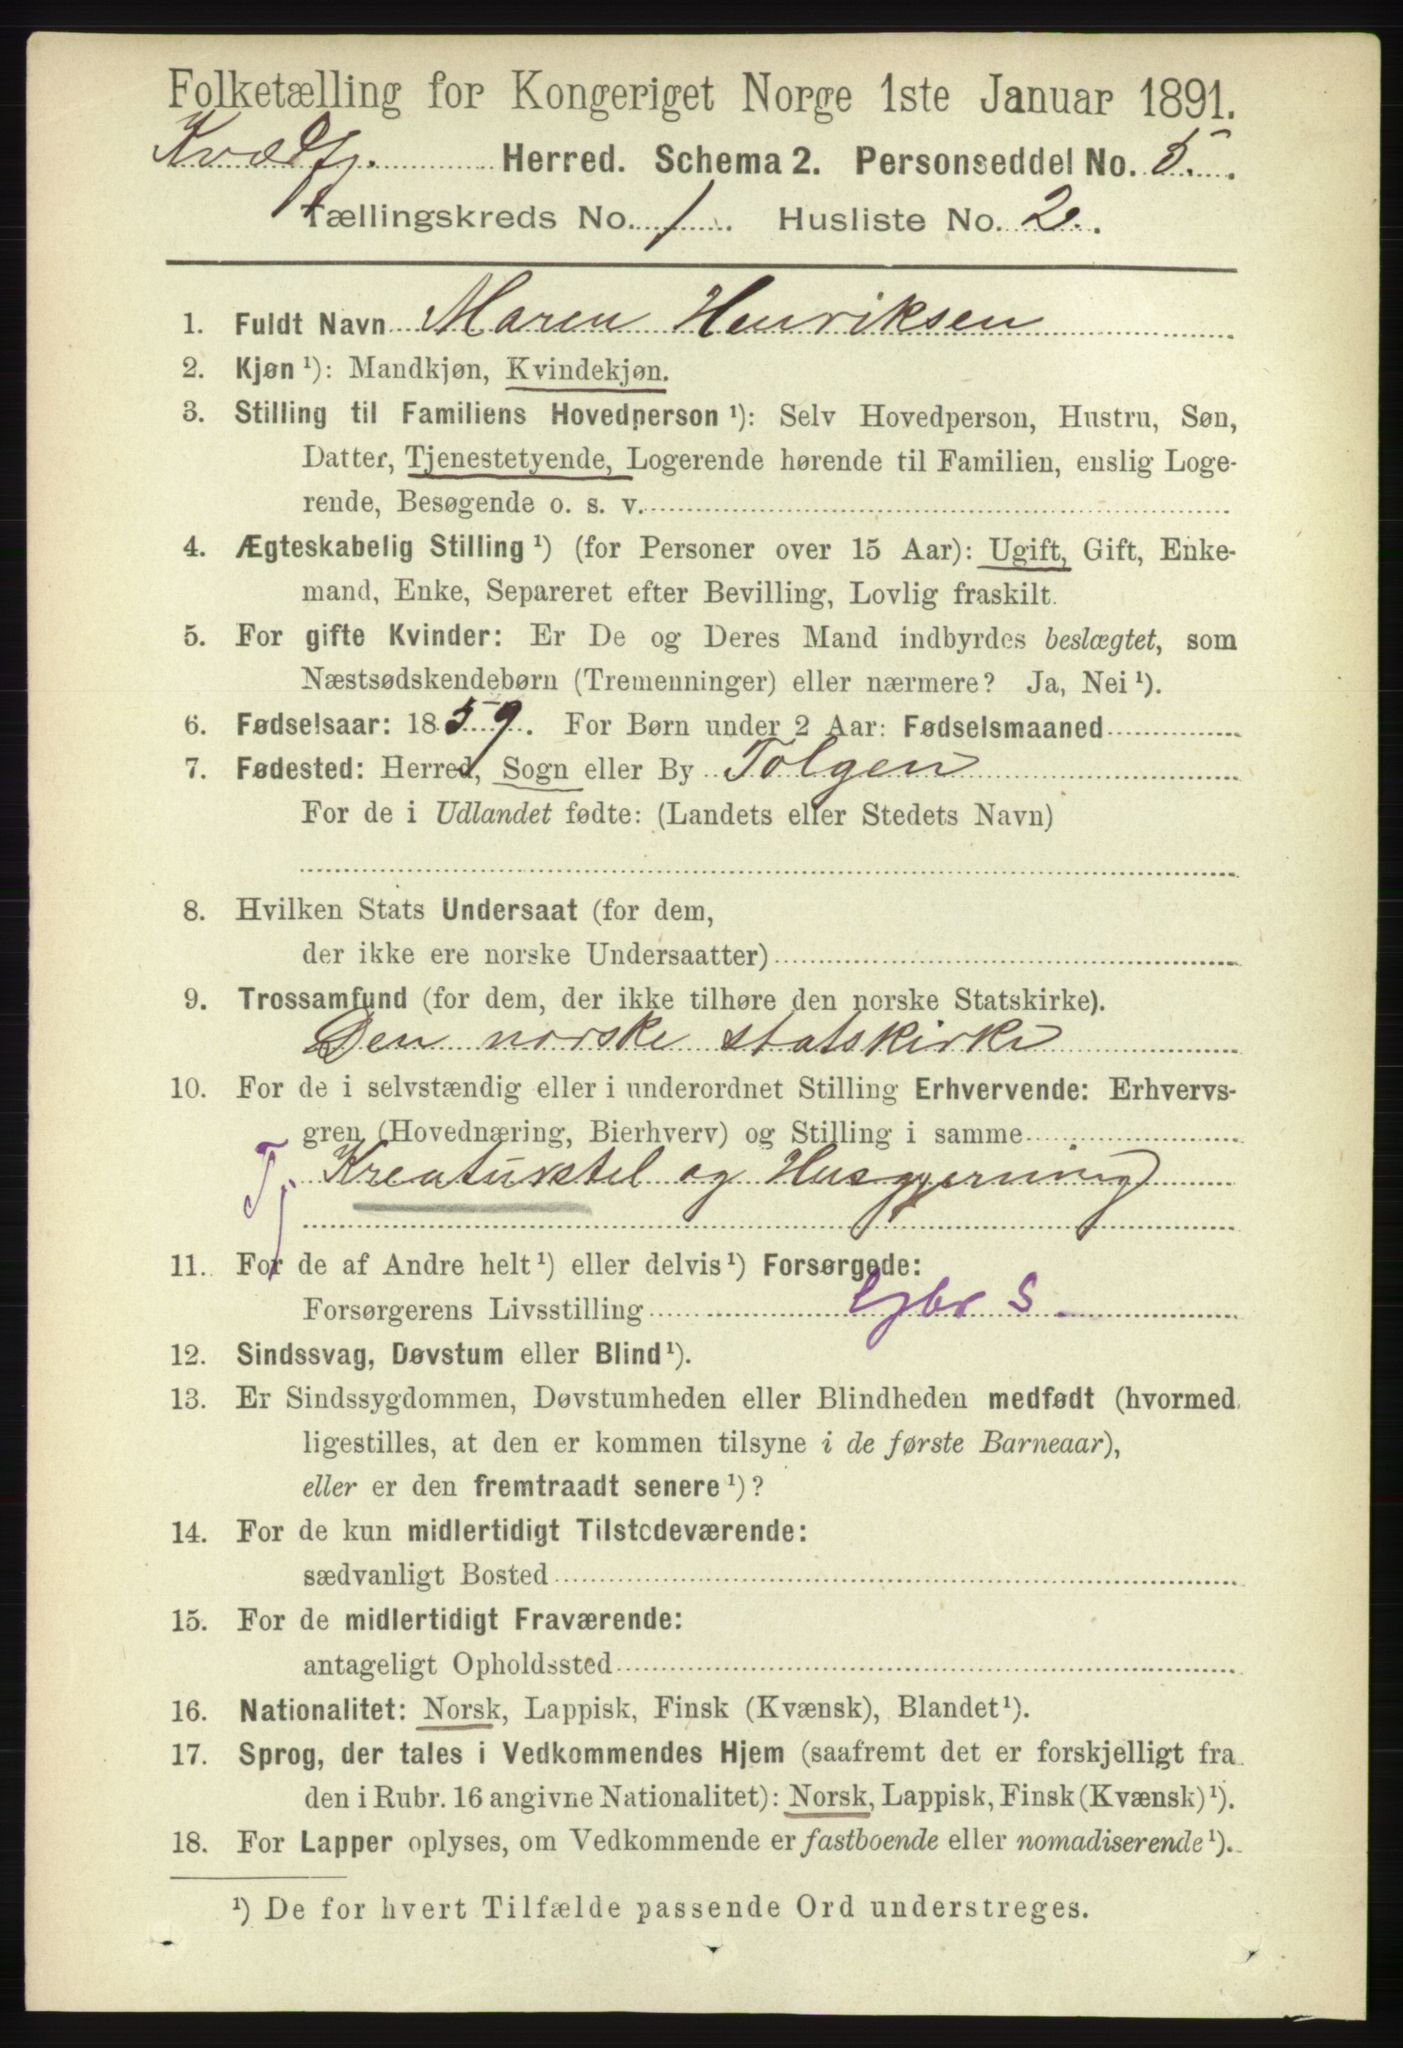 Folketælling for Kongeriget Norge 1ste Januar 1891.
Kvædfj. Herred. Schema 2. Personseddel No. 5.
Tællingskreds No. 1. Husliste No. 2.
1. Fuldt Navn Maren Henriksen
2. Kjøn ¹): Mandkjøn, Kvindekjøn.
3. Stilling til Familiens Hovedperson ¹): Selv Hovedperson, Hustru, Søn,
Datter, Tjenestetyende, Logerende hørende til Familien, enslig Loge-
rende, Besøgende o. s. v.
4. Ægteskabelig Stilling ¹) (for Personer over 15 Aar): Ugift, Gift, Enke-
mand, Enke, Separeret efter Bevilling, Lovlig fraskilt.
5. For gifte Kvinder: Er De og Deres Mand indbyrdes beslægtet, som
Næstsødskendebørn (Tremenninger) eller nærmere? Ja, Nei ¹).
6. Fødselsaar: 1859. For Børn under 2 Aar: Fødselsmaaned
7. Fødested: Herred, Sogn eller By Tolgen
For de i Udlandet fødte: (Landets eller Stedets Navn)
8. Hvilken Stats Undersaat (for dem,
der ikke ere norske Undersaatter)
9. Trossamfund (for dem, der ikke tilhøre den norske Statskirke).
Den norske statskirke
10. For de i selvstændig eller i underordnet Stilling Erhvervende: Erhvervs-
gren (Hovednæring, Bierhverv) og Stilling i samme
Tj. Kreaturstel og Husgjerning
11. For de af Andre helt ¹) eller delvis ¹) Forsørgede:
Forsørgerens Livsstilling S
12. Sindssvag, Døvstum eller Blind ¹).
13. Er Sindssygdommen, Døvstumheden eller Blindheden medfødt (hvormed
ligestilles, at den er kommen tilsyne i de første Barneaar),
eller er den fremtraadt senere ¹)?
14. For de kun midlertidigt Tilstedeværende:
sædvanligt Bosted
15. For de midlertidigt Fraværende:
antageligt Opholdssted
16. Nationalitet: Norsk, Lappisk, Finsk (Kvænsk), Blandet ¹).
17. Sprog, der tales i Vedkommendes Hjem (saafremt det er forskjelligt fra
den i Rubr. 16 angivne Nationalitet): Norsk, Lappisk, Finsk (Kvænsk) ¹).
18. For Lapper oplyses, om Vedkommende er fastboende eller nomadiserende ¹).
¹) De for hvert Tilfælde passende Ord understreges.